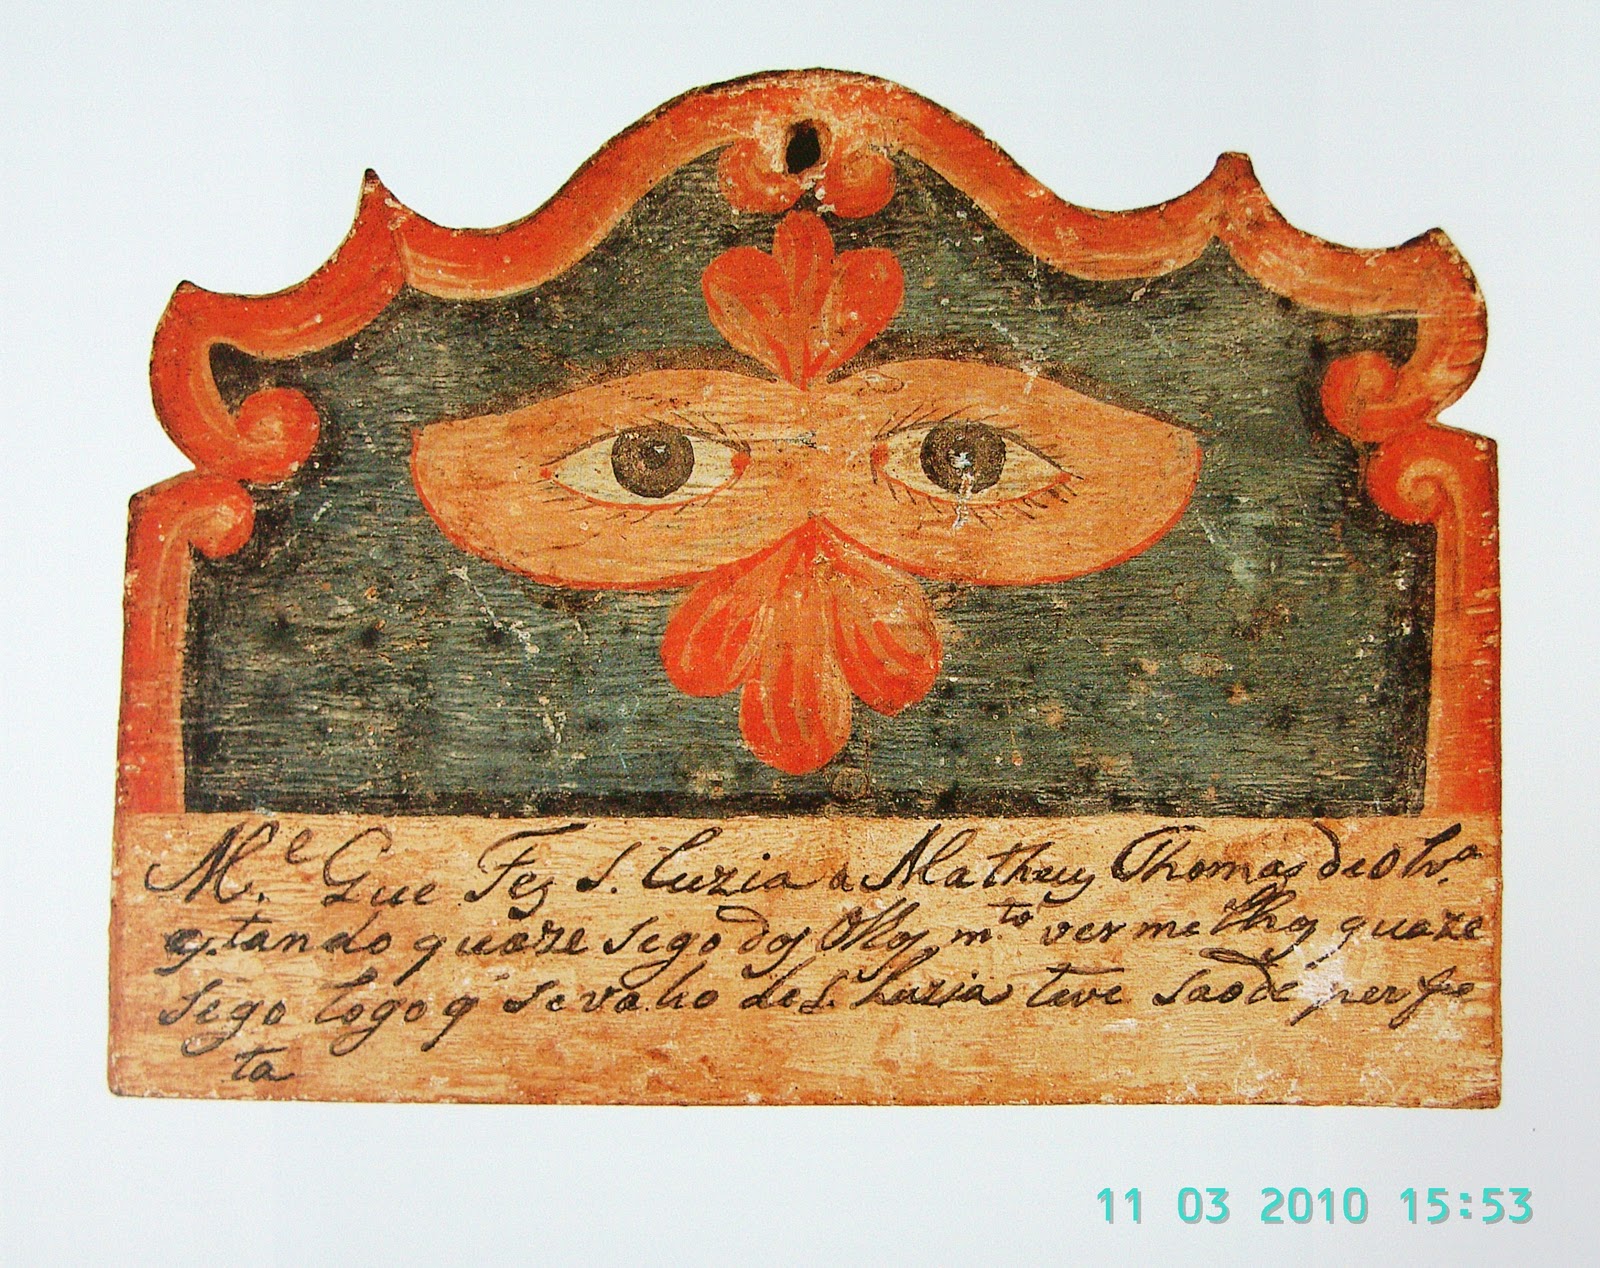 M.e Que Fez S. Luzia a Matheuz Thomas de Olv.a
estando quaze sego dos Olhos m.to vermelhos quaze
sego logo q' se valio de S. Luzia teve saode perfe
ta
11 03 2010 15:53